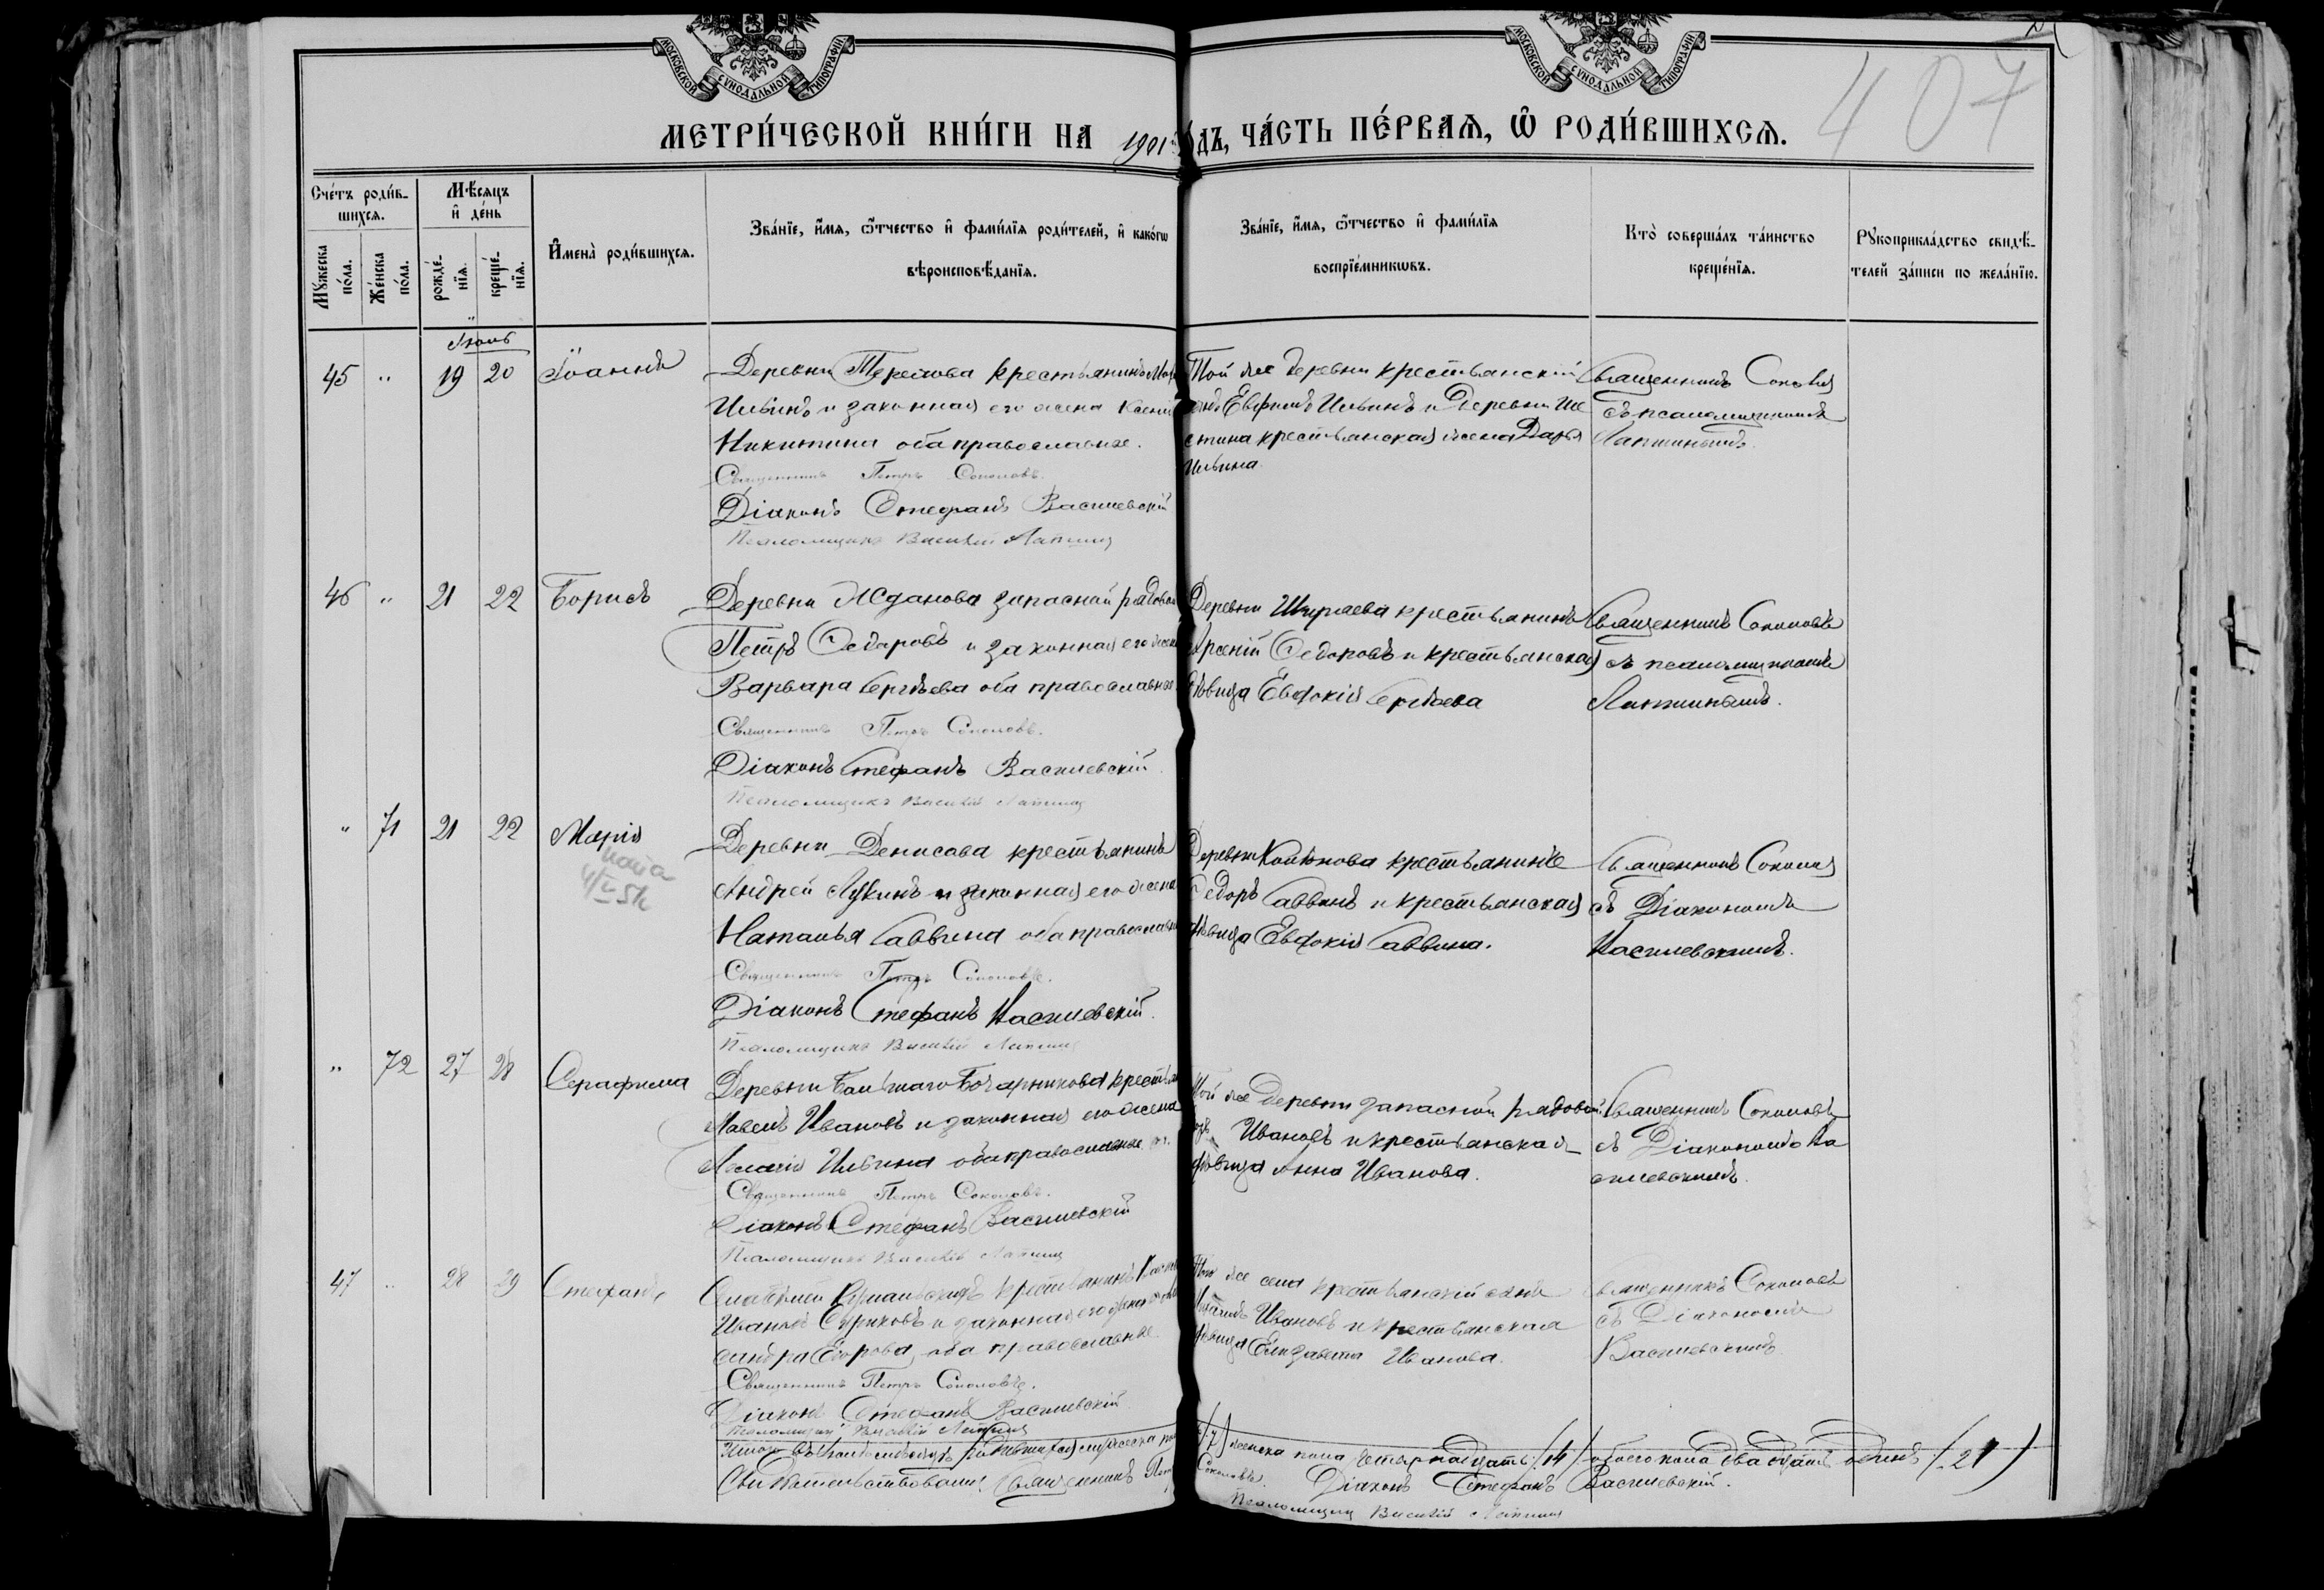 МОСКОВСКОЙ СѴНОДАЛЬНОЙ ТИПОГРАФІИ
МОСКОВСКОЙ СѴНОДАЛЬНОЙ ТИПОГРАФІИ
407
МЕТРИ́ЧЕСКОЙ КНИ́ГИ НА 1901 ДЪ, ЧА́СТЬ ПЕ́РВАѦ, Ѡ҆ РОДИ́ВШИХСѦ.
Сче́тъ роди́в-
шихся.
Мѣ́сяцъ
и҆ де́нь
Мꙋ́жеска по́ла.
Же́нска по́ла.
рожде́-нїя.
креще́-нїя.
И҆мена̀ роди́вшихся.
Зва́нїе, и҆́мя, ѻ҆́тчество и҆ фами́лїя роди́телей, и҆ како́гѡ
вѣроисповѣ́данїя.
Зва́нїе, и҆́мя, ѻ҆́тчество и҆ фами́лїя
воспрїе́мникѡвъ.
Кто̀ соверша́лъ та́инство
креще́нїя.
Рꙋкоприкла́дство свидѣ́-
телей за́писи по жела́нїю.
45 " 19 20 Іоаннъ
Деревни крестьянинъ
Ильинъ и законная его жена
Никитина оба православные.
Священникъ Петръ Соколовъ.
Діаконъ Стефанъ Васильевскій
Псаломщикъ Василій Лапшинъ
Той же деревни крестьянскій
Евфимъ Ильинъ и деревни
стина крестьянская жена Дарья
Ильина.
Священникъ Соколовъ
съ псаломщикомъ
Лапшинымъ.
46 " 21 22 Борисъ
Деревни Жданова запасный рядовой
Петръ Ѳедоровъ и законная его жена
Варвара Сергѣева оба православные.
Священникъ Петръ Соколовъ.
Діаконъ Стефанъ Васильевскій.
Псаломщикъ Василій Лапшинъ
Деревни крестьянинъ
Арсеній Ѳедоровъ и крестьянская
дѣвица Евдокія Сергѣева
Священникъ Соколовъ
съ псаломщикомъ
Лапшинымъ.
" 71 21 22 Марія
Деревни Денисова крестьянинъ
Андрей Лукинъ и законная его жена
Наталья Саввина оба православные
Священникъ Петръ Соколовъ.
Діаконъ Стефанъ Васильевскій.
Псаломщикъ Василій Лапшинъ
Деревни крестьянинъ
Ѳедоръ Саввинъ и крестьянская
дѣвица Евдокія Саввина.
Священникъ Соколовъ
съ Діакономъ
Васильевскимъ.
" 72 27 28 Серафима
Деревни Большаго Бочарникова
Павелъ Ивановъ и законная его жена
Ильина оба православные
Священникъ Петръ Соколовъ.
Діаконъ Стефанъ Васильевскій
Псаломщикъ Василій Лапшинъ
Той же деревни запасной рядовой
Ивановъ и крестьянская
дѣвица Анна Иванова.
Священникъ Соколовъ
съ Діакономъ Ва
сильевскимъ.
47 " 28 29 Стефанъ
крестьянинъ
Ивановъ и законная его жена
сандра Егорова, оба православные.
Священникъ Петръ Соколовъ.
Діаконъ Стефанъ Васильевскій
Псаломщикъ Василій Лапшинъ
Того же села крестьянскій сынъ
Ивановъ и крестьянская
дѣвица Елизавета Иванова.
Священникъ Соколовъ
съ Діакономъ
Васильевскимъ
женска пола четырнадцать (14) обоего пола двадцать одинъ (21)
Свидѣтельствовали: Священникъ Петръ Соколовъ.
Діаконъ Стефанъ Васильевскій.
Псаломщикъ Василій Лапшинъ